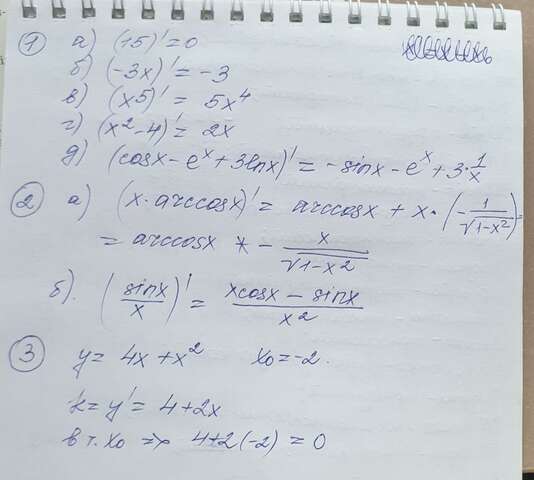 ① а) (15)' = 0
б) (-3x)' = -3
в) (x5)' = 5x⁴
г) (x² - 4)' = 2x
д) (cosx - eˣ + 3lnx)' = -sinx - eˣ + 3·1/x
② а) (x·arccosx)' = arccosx + x·(-1/√(1-x²)) =
= arccosx - x/√(1-x²)
б). (sinx/x)' = (xcosx - sinx)/x²
③ y = 4x + x² x₀ = -2.
k = y' = 4 + 2x
в т. x₀ => 4+2(-2) = 0